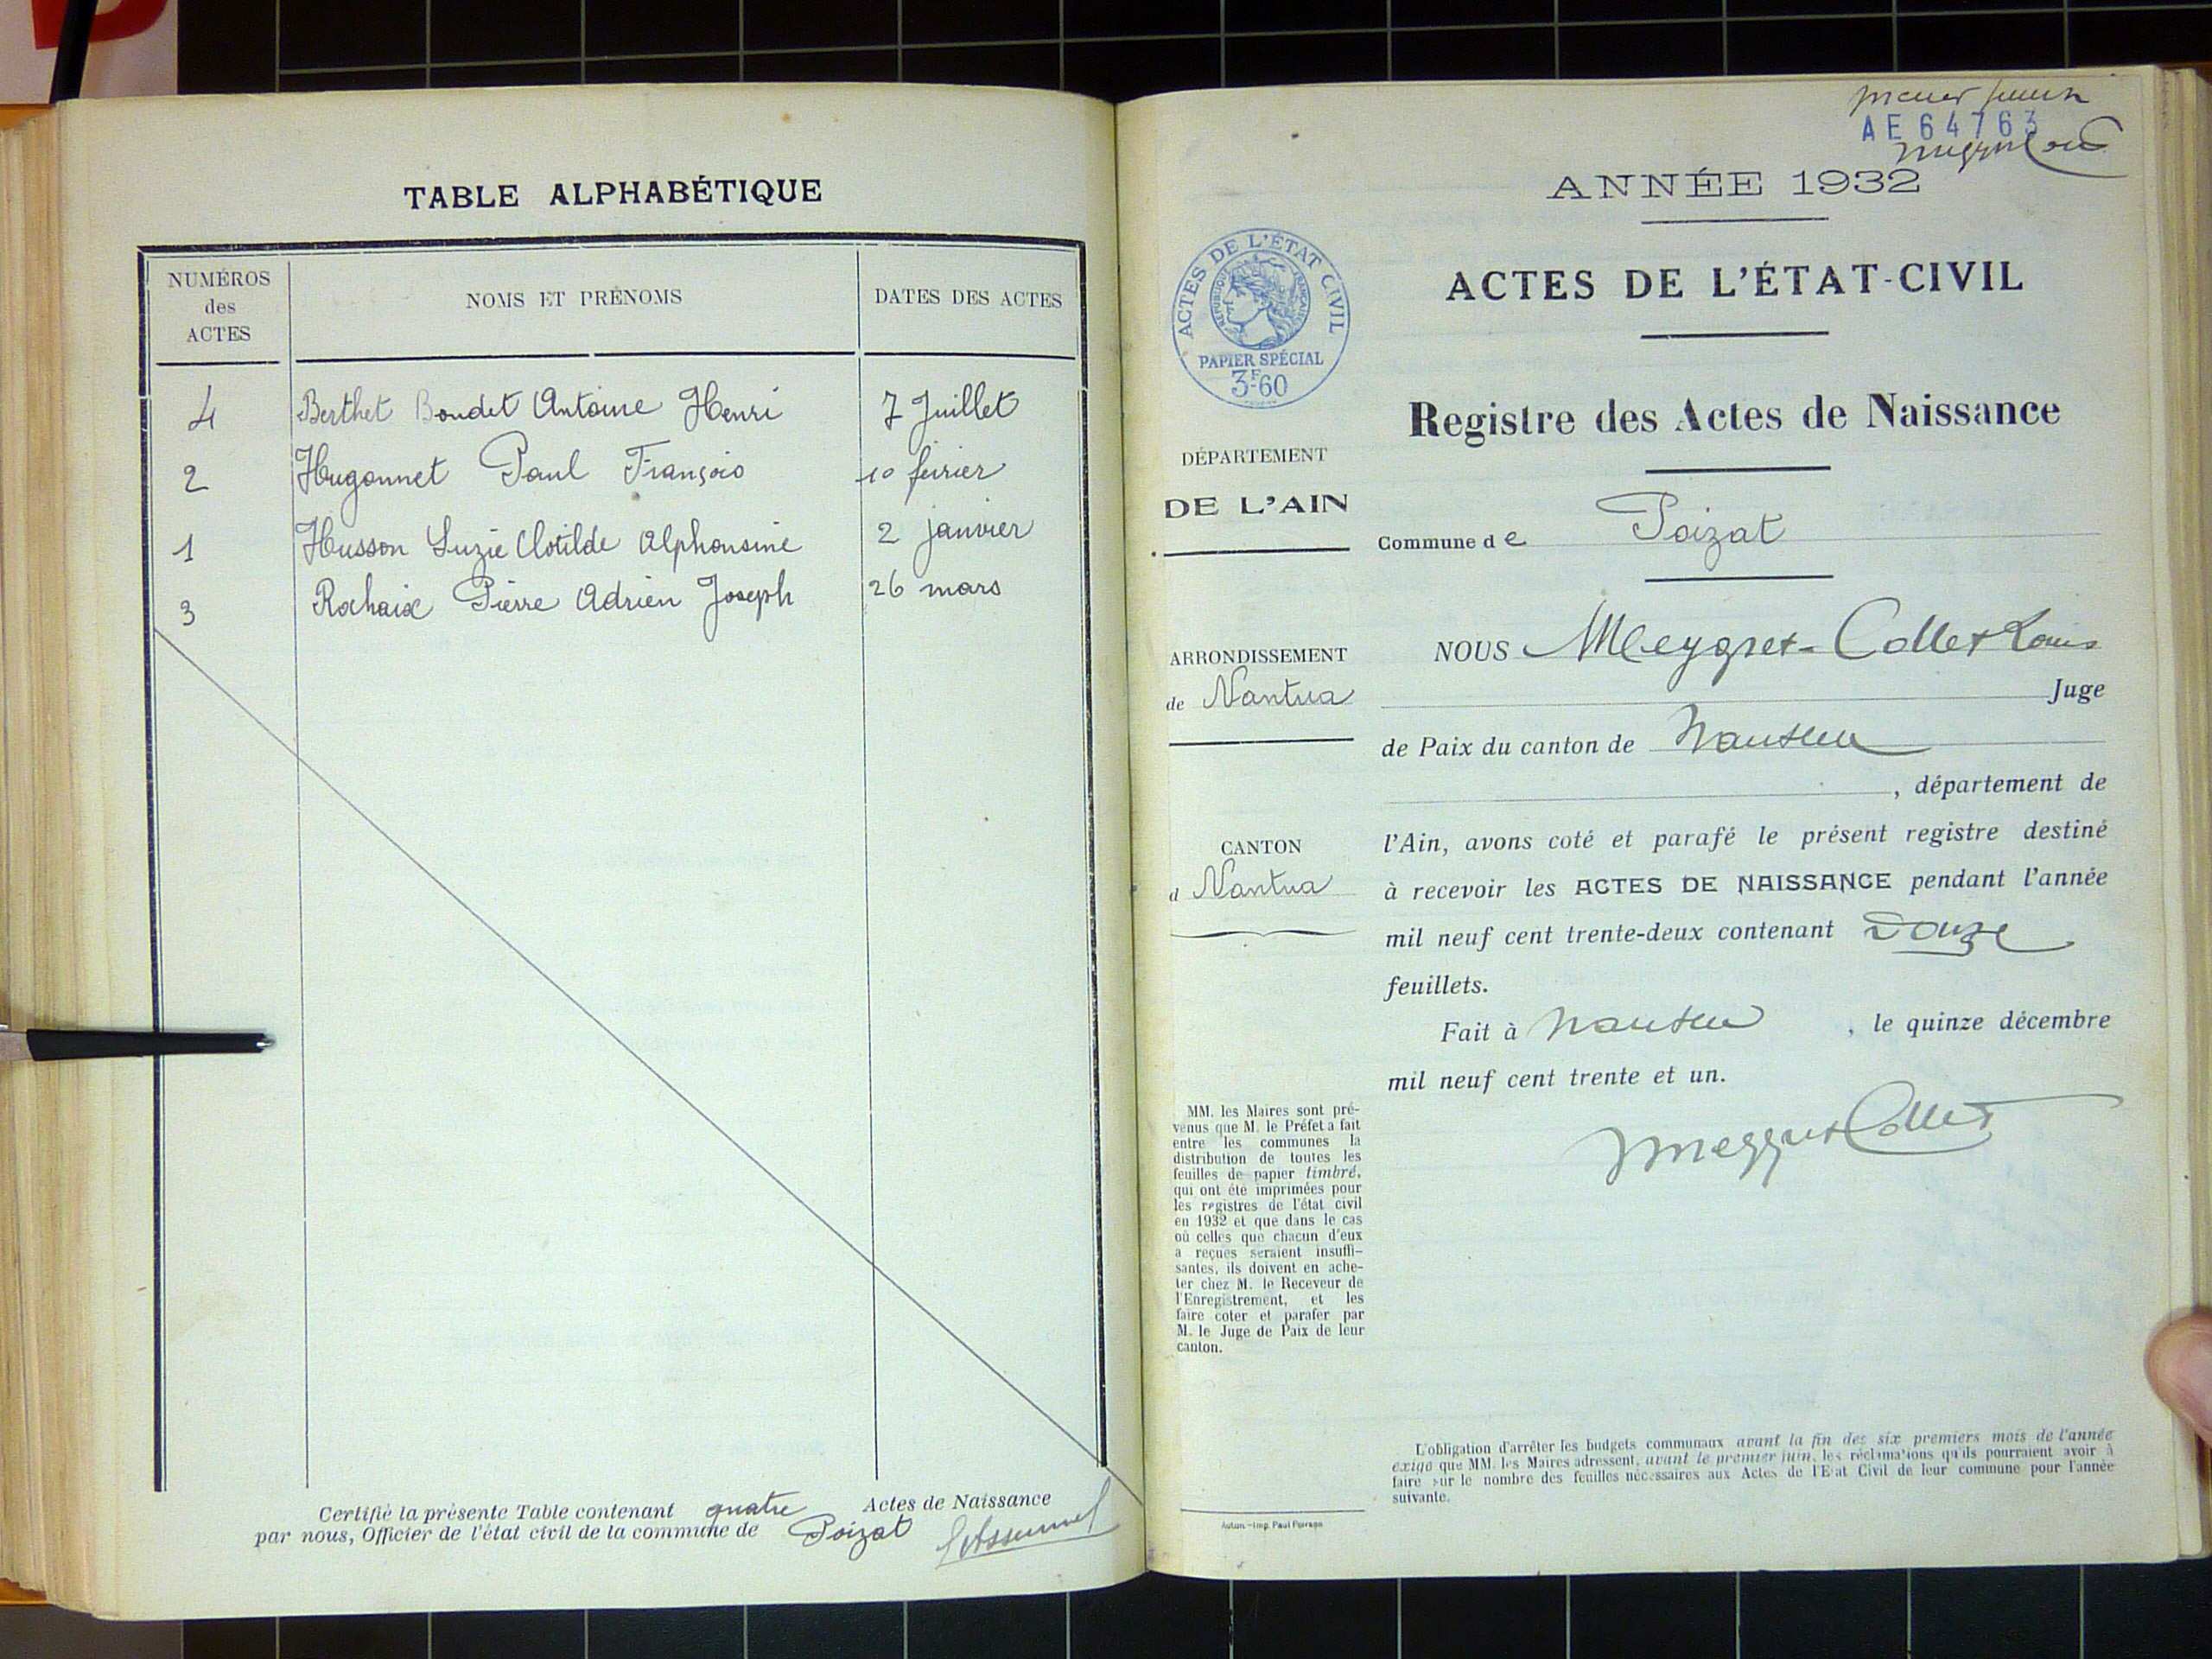 TABLE ALPHABÉTIQUE
NUMÉROS
des
ACTES
NOMS ET PRÉNOMS
DATES DES ACTES
4 Berthet Bondet Antoine Henri 7 Juillet
2 Hugonnet Paul François 10 février
1 Husson Suzie Clotilde Alphonsine 2 janvier
3 Rochaix Pierre Adrien Joseph 26 mars
Certifié la présente Table contenant quatre Actes de Naissance
par nous, Officier de l'état civil de la commune de Poizat
AE64763
ANNÉE 1932
ACTES DE L'ÉTAT CIVIL
RÉPUBLIQUE FRANÇAISE
PAPIER SPÉCIAL
3F60
DÉPARTEMENT
DE L'AIN
ARRONDISSEMENT
de Nantua
CANTON
d Nantua
MM. les Maires sont pré-
venus que M. le Préfet a fait
entre les communes la
distribution de toutes les
feuilles de papier timbré,
qui ont été imprimées pour
les registres de l'état civil
en 1932 et que dans le cas
où celles que chacun d'eux
a reçues seraient insuffi-
santes, ils doivent en ache-
ter chez M. le Receveur de
l'Enregistrement, et les
faire coter et parafer par
M. le Juge de Paix de leur
canton.
Autun.-Imp. Paul Poirson
ACTES DE L'ÉTAT-CIVIL
Registre des Actes de Naissance
Commune de Poizat
NOUS Meygret-Collet Louis
Juge
de Paix du canton de Nantua
, département de
l'Ain, avons coté et parafé le présent registre destiné
à recevoir les ACTES DE NAISSANCE pendant l'année
mil neuf cent trente-deux contenant Douze
feuillets.
Fait à Nantua , le quinze décembre
mil neuf cent trente et un.
Meygret Collet
L'obligation d'arrêter les budgets communaux avant la fin des six premiers mois de l'année
exige que MM. les Maires adressent, avant le premier juin, les réclamations qu'ils pourraient avoir à
faire sur le nombre des feuilles nécessaires aux Actes de l'Etat Civil de leur commune pour l'année
suivante.